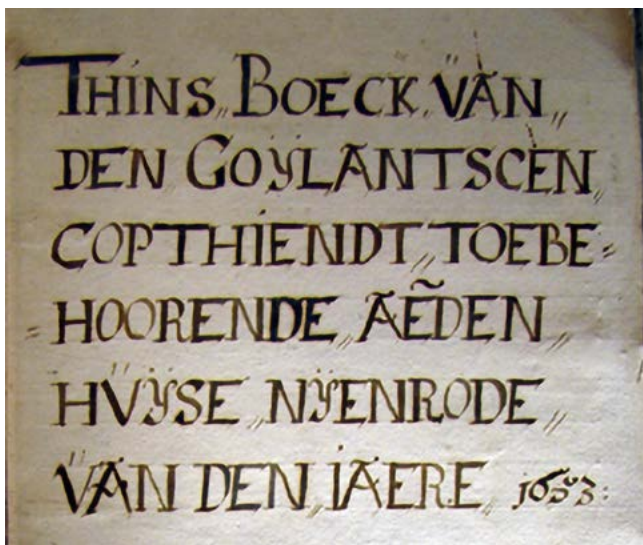 THINS,, BOECK VAN,,
DEN GOŸLANTSCEN,,
COPTHIENDT,, TOEBE=
=HOORENDE,, AEÑDEN,,
HVŸSE,, NŸENRODE,,
VAN DEN,, IAERE,, 1653: